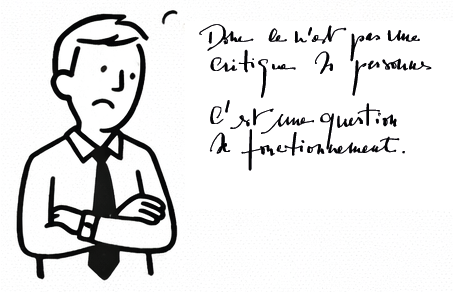 Donc ce n'est pas une
critique de personnes
C'est une question
de fonctionnement.